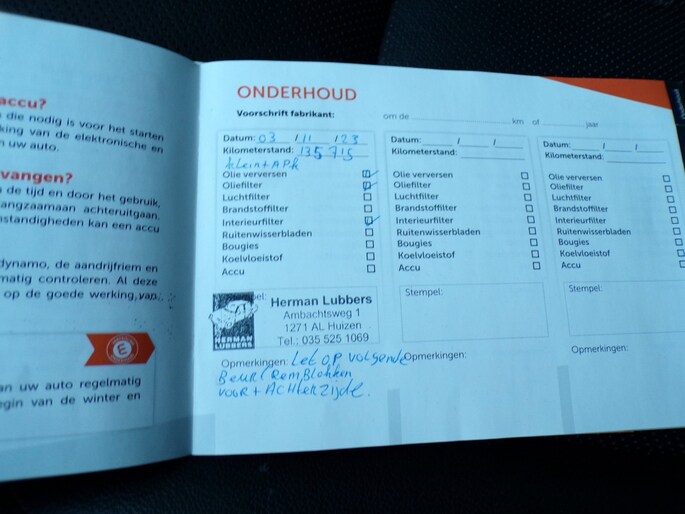 accu?
die nodig is voor het starten
king van de elektronische en
uw auto.
vangen?
de tijd en door het gebruik,
angzaamaan achteruitgaan.
nstandigheden kan een accu
dynamo, de aandrijfriem en
matig controleren. Al deze
op de goede werking van
E
an uw auto regelmatig
egin van de winter en
ONDERHOUD
Voorschrift fabrikant: om de km of jaar
Datum: 03 / 11 / 23
Kilometerstand: 135 715
klein + APK
Olie verversen
Oliefilter
Luchtfilter
Brandstoffilter
Interieurfilter
Ruitenwisserbladen
Bougies
Koelvloeistof
Accu
Stempel:
HERMAN LUBBERS
Herman Lubbers
Ambachtsweg 1
1271 AL Huizen
Tel.: 035 525 1069
Opmerkingen: Let op volgende
Beurt Remblokken
voor + Achterzijde.
Datum: / /
Kilometerstand:
Olie verversen
Oliefilter
Luchtfilter
Brandstoffilter
Interieurfilter
Ruitenwisserbladen
Bougies
Koelvloeistof
Accu
Stempel:
Opmerkingen:
Datum: / /
Kilometerstand:
Olie verversen
Oliefilter
Luchtfilter
Brandstoffilter
Interieurfilter
Ruitenwisserbladen
Bougies
Koelvloeistof
Accu
Stempel:
Opmerkingen: